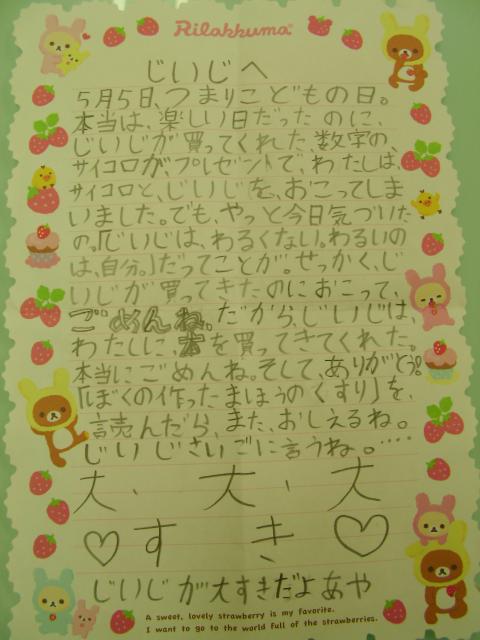 Rilakkuma
じいじへ
5月5日、つまりこどもの日。
本当は、楽しい日だったのに、
じいじが買ってくれた、数字の、
サイコロが、プレゼントで、わたしは、
サイコロと、じいじを、おこってしま
いました。でも、やっと今日気づいた
の。「じいじは、わるくない。わるいの
は、自分。」だってことが。せっかく、じ
いじが買ってきたのにおこって、
ごめんね。だから、じいじは、
わたしに、本を買ってきてくれた。
本当にごめんね。そして、ありがとう!
「ぼくの作ったまほうのくすり」を、
読んだら、また、おしえるね。
じいじさいごに言うね。····
大、大、大
♡すき♡
じいじが大すきだよあや
A sweet, lovely strawberry is my favorite.
I want to go to the world full of the strawberries.